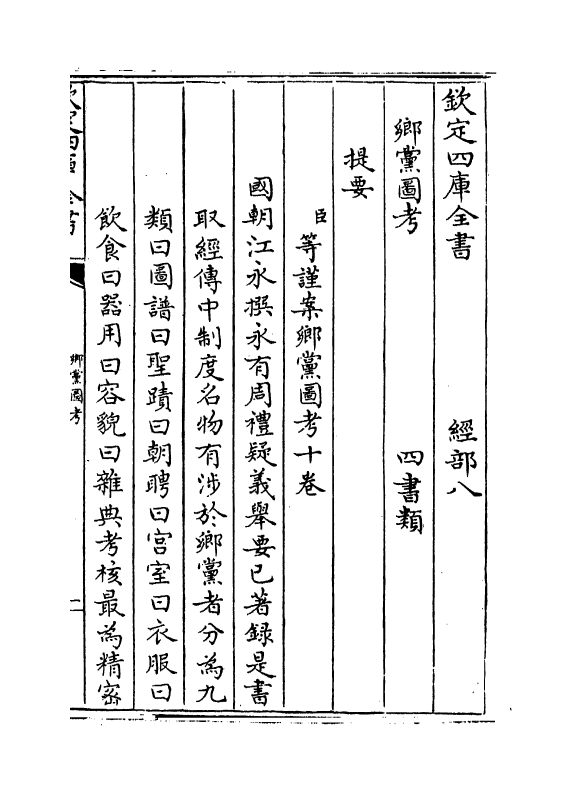 欽定四庫全書　經部八
鄉黨圖考　四書類
提要
臣等謹案鄉黨圖考十卷
國朝江永撰永有周禮疑義舉要已著録是書
取經傳中制度名物有涉於鄉黨者分為九
類曰圖譜曰聖蹟曰朝聘曰宫室曰衣服曰
飲食曰器用曰容貌曰雜典考核最為精密
鄉黨圖考